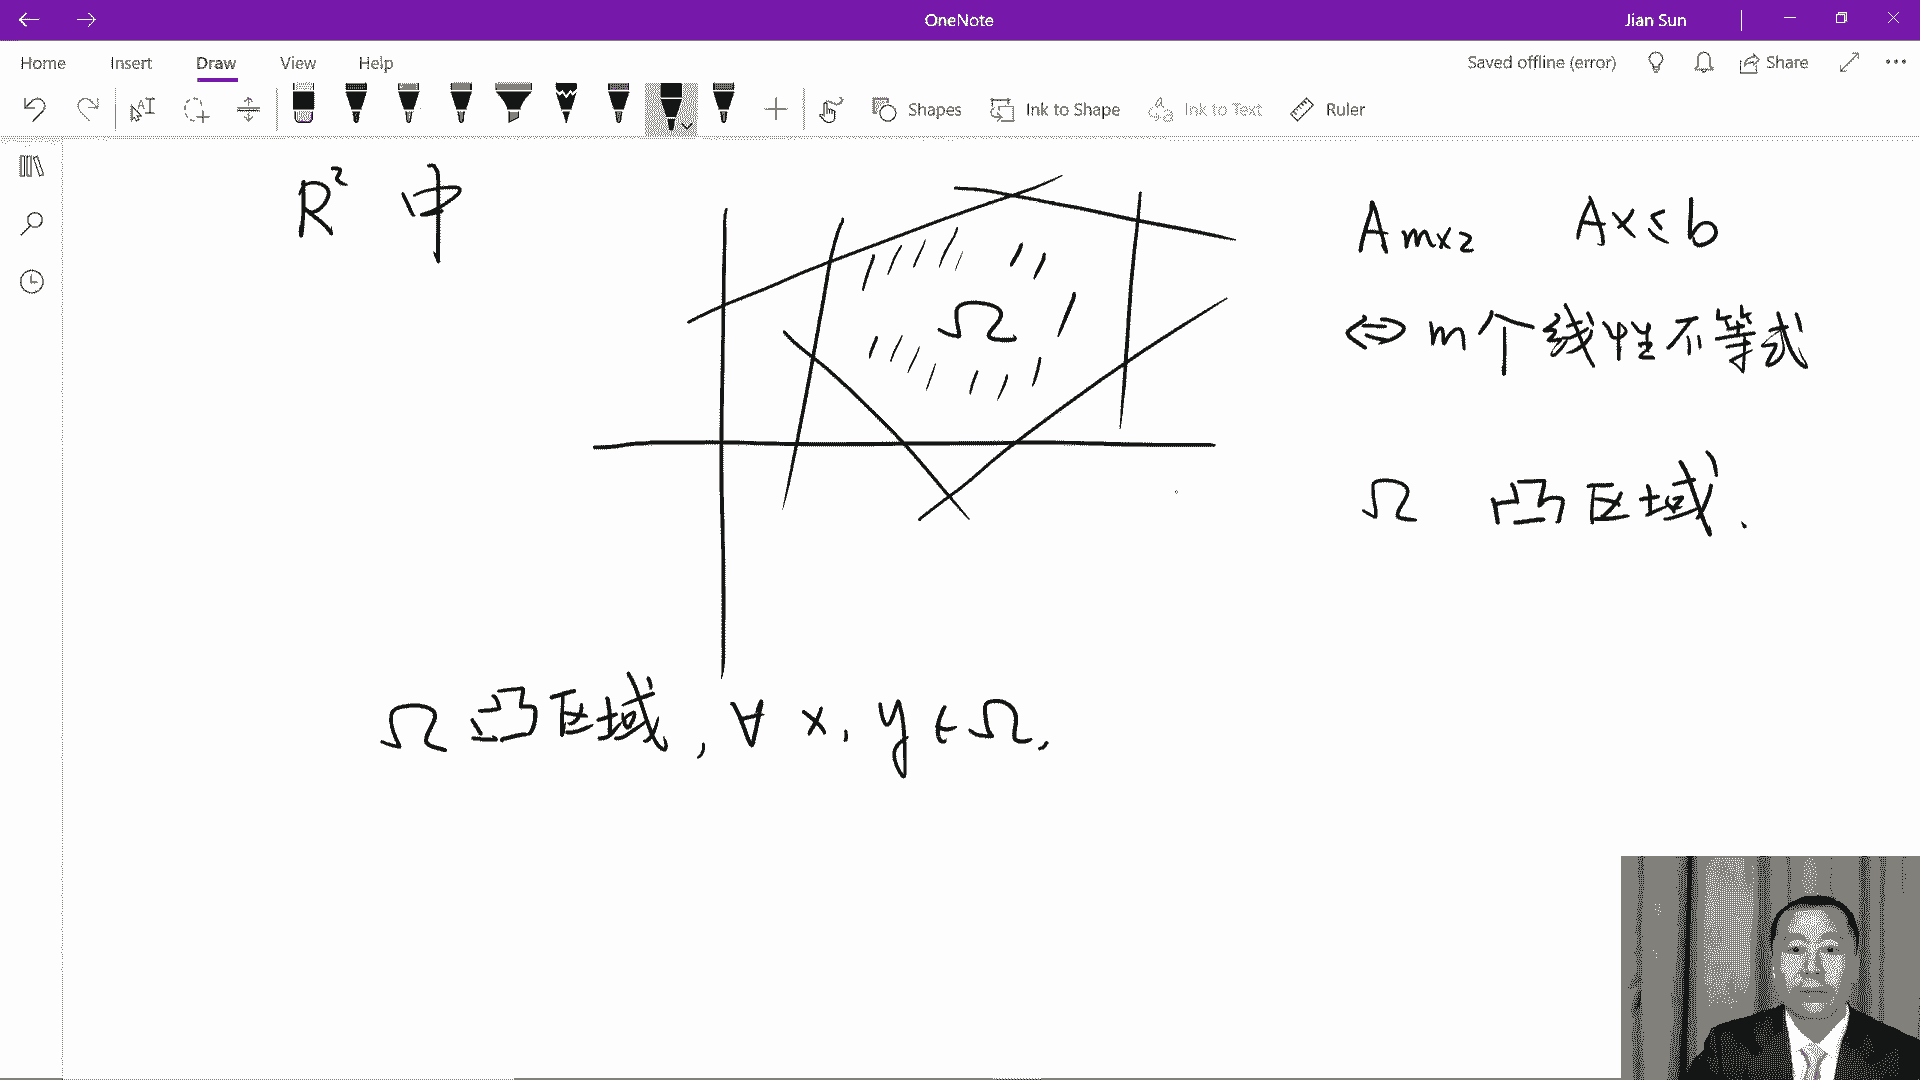 OneNote
Jian Sun
Home Insert Draw View Help
Saved offline (error)
Share
Shapes
Ink to Shape
Ink to Text
Ruler
R² 中
Ω
A m×2 Ax ≤ b
⇔ m个线性不等式
Ω 凸区域.
Ω 凸区域, ∀ x, y ∈ Ω,